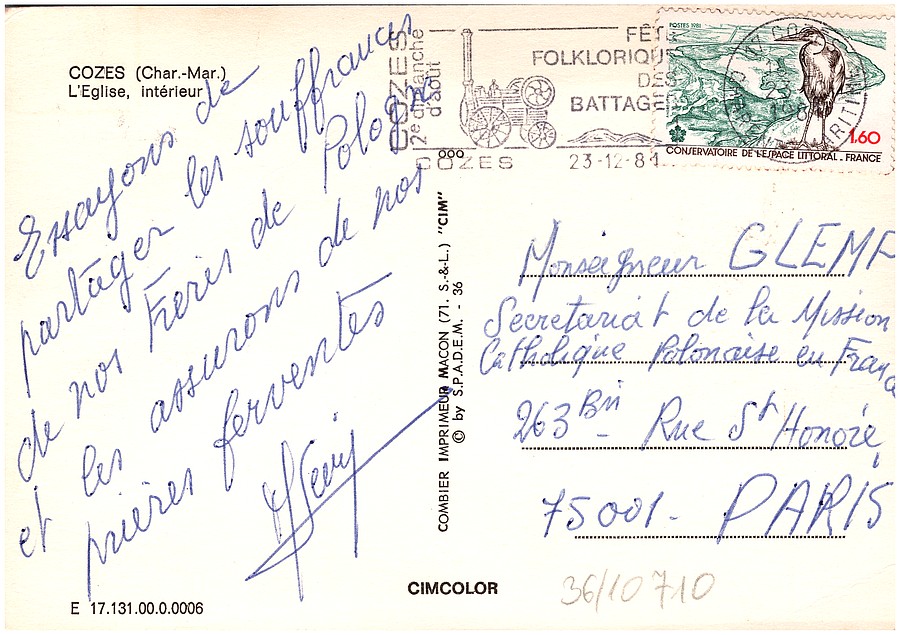 COZES (Char.-Mar.)
L'Eglise, intérieur
Essayons de
partager les souffrances
de nos Frères de Pologne
et les assurons de nos
prières ferventes
COZES
2e dimanche
d'août
FÊT
FOLKLORIQU
DES
BATTAGE
COZES 23-12-81
POSTES 1981
1.60
CONSERVATOIRE DE L'ESPACE LITTORAL - FRANCE
COMBIER IMPRIMEUR MACON (71. S.-&-L.) "CIM"
© by S.P.A.D.E.M. - 36
Monseigneur GLEMP
Secretariat de la Mission
Catholique Polonaise en Franc
263 Bis - Rue St Honoré
75001 - PARIS
CIMCOLOR
36/10710
E 17.131.00.0.0006